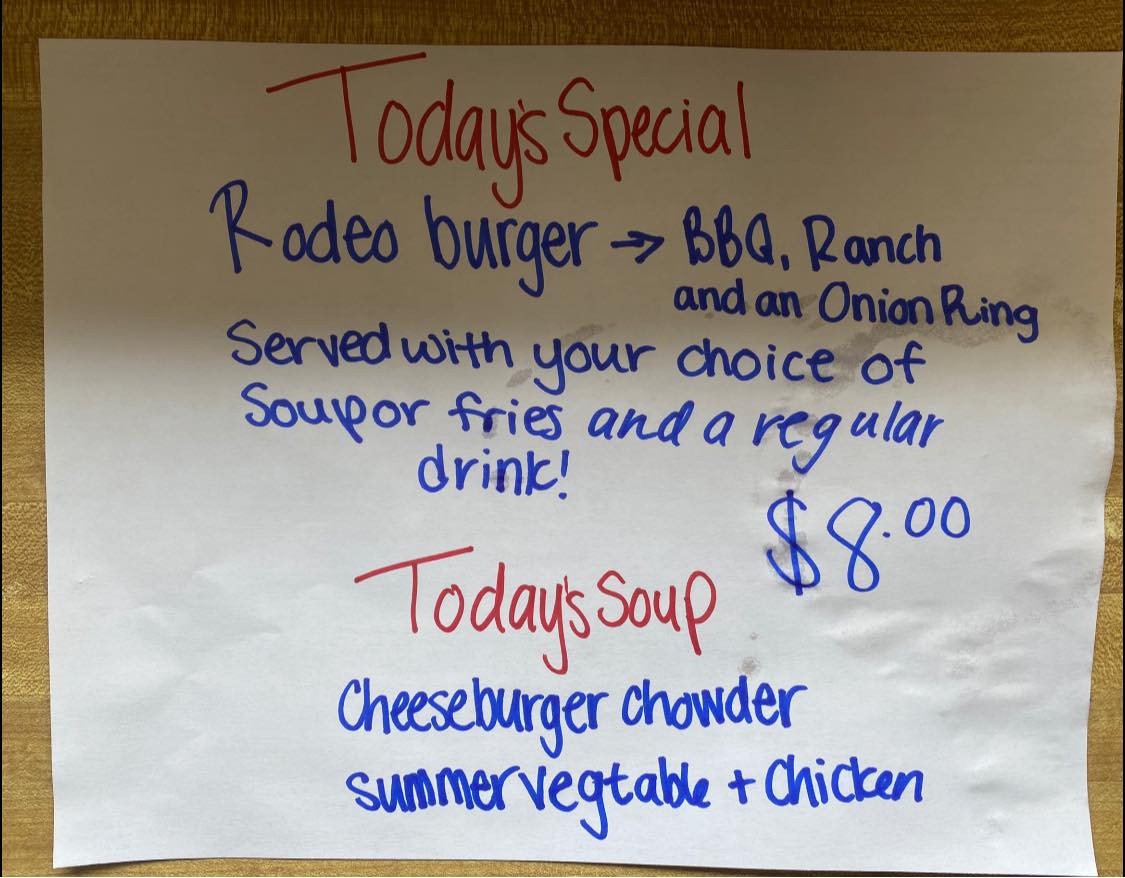 Today's Special
Rodeo burger → BBQ, Ranch
and an Onion Ring
Served with your choice of
Soup or fries and a regular
drink!
$8.00
Today's Soup
Cheeseburger chowder
summer vegtable + Chicken